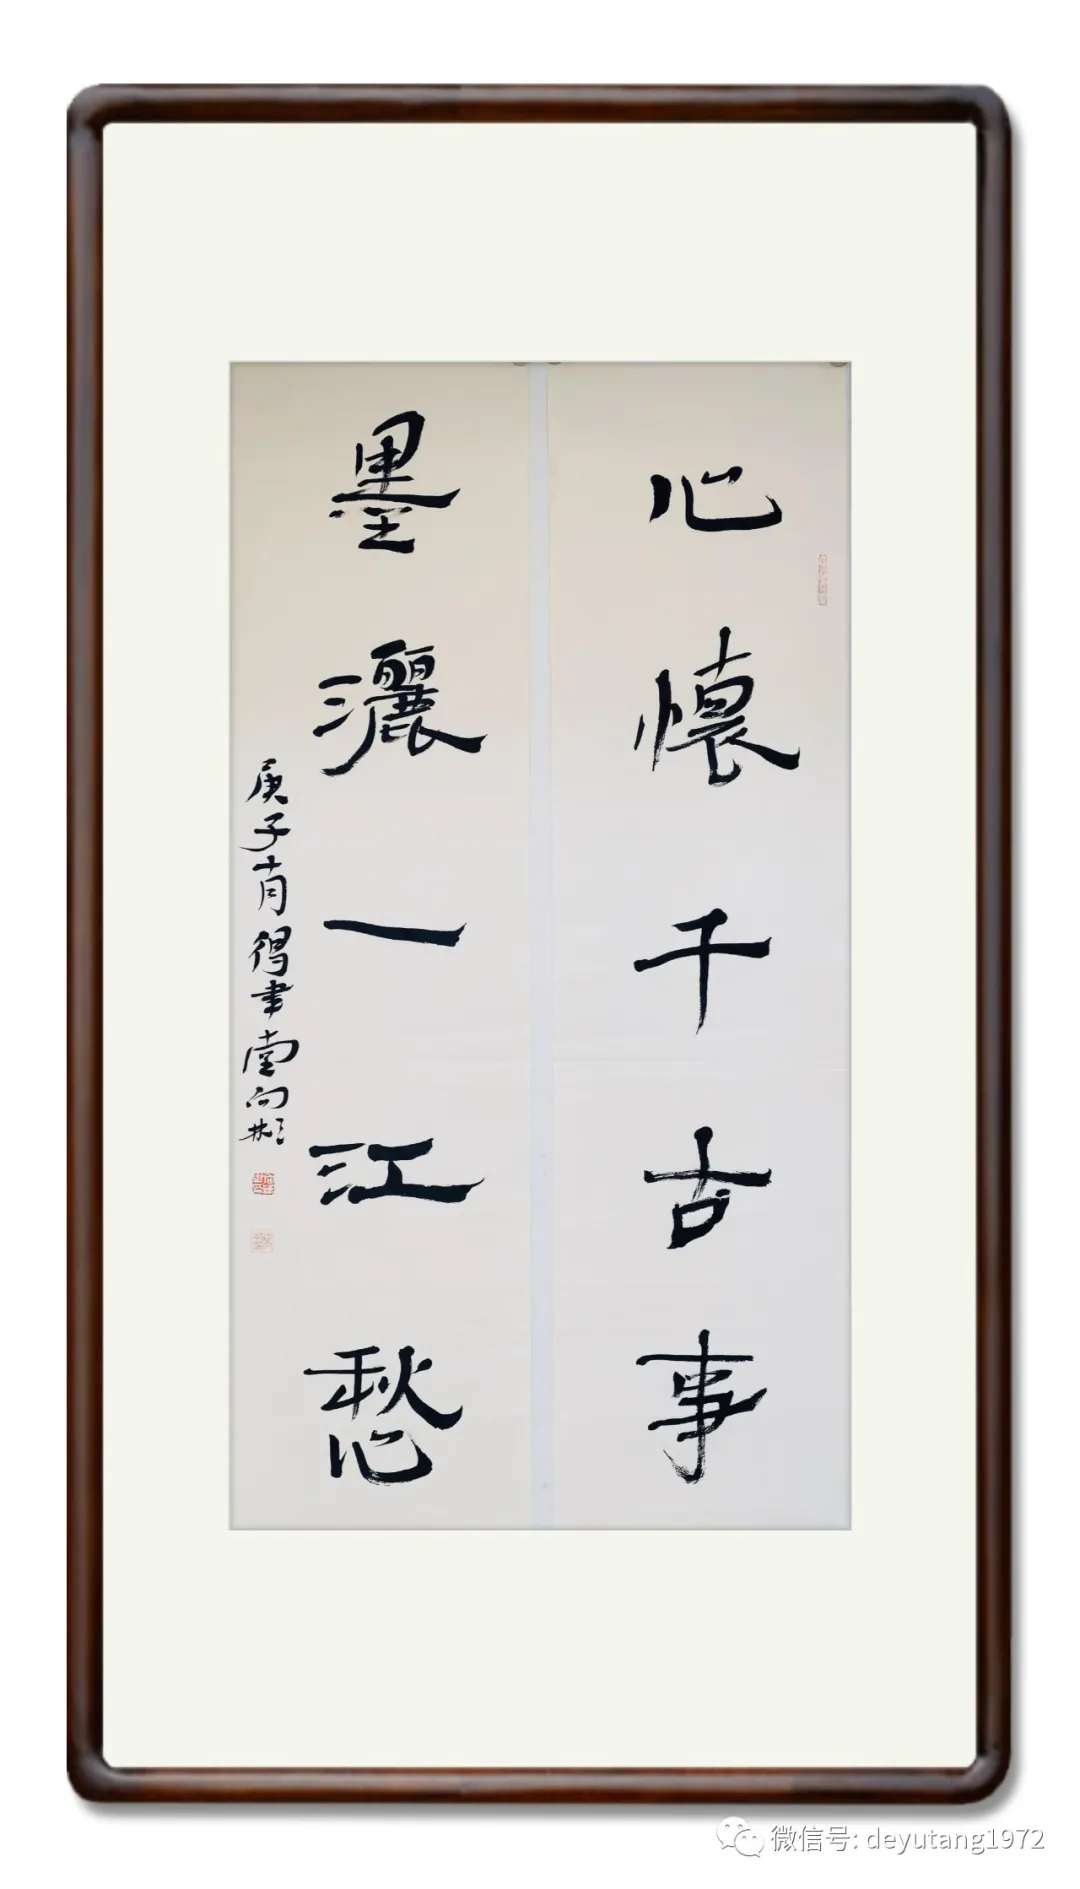 心懷千古事
墨灑一江愁
庚子有得聿堂向彬
微信号: deyutang1972